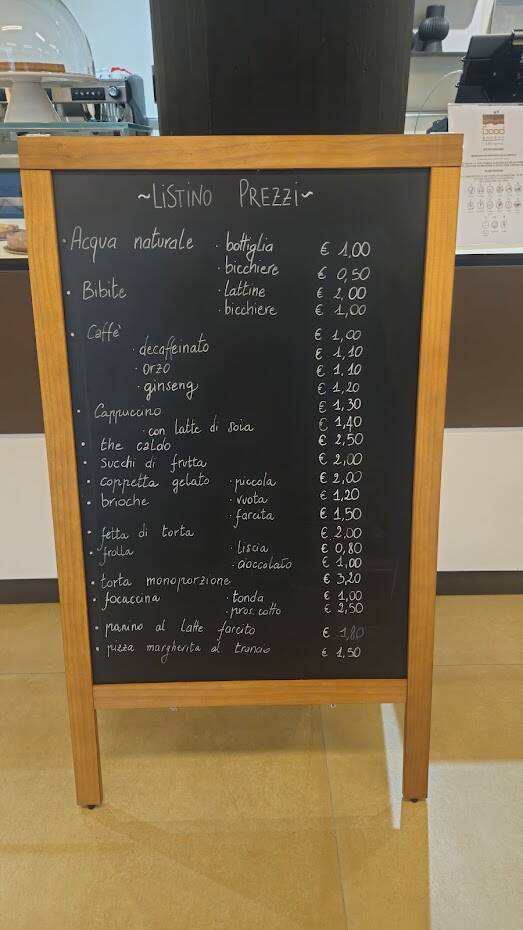 ~LISTINO PREZZI~
· Acqua naturale · bottiglia € 1,00
· bicchiere € 0,50
· Bibite · lattine € 2,00
· bicchiere € 1,00
· Caffè € 1,00
· decaffeinato € 1,10
· orzo € 1,10
· ginseng € 1,20
· Cappuccino € 1,30
· con latte di soia € 1,40
· the caldo € 2,50
· succhi di frutta € 2,00
· coppetta gelato · piccola € 2,00
· brioche · vuota € 1,20
· farcita € 1,50
· fetta di torta € 2,00
· frolla · liscia € 0,80
· cioccolato € 1,00
· torta monoporzione € 3,20
· focaccina · tonda € 1,00
· pros. cotto € 2,50
· panino al latte farcito € 1,80
· pizza margherita al trancio € 1,50